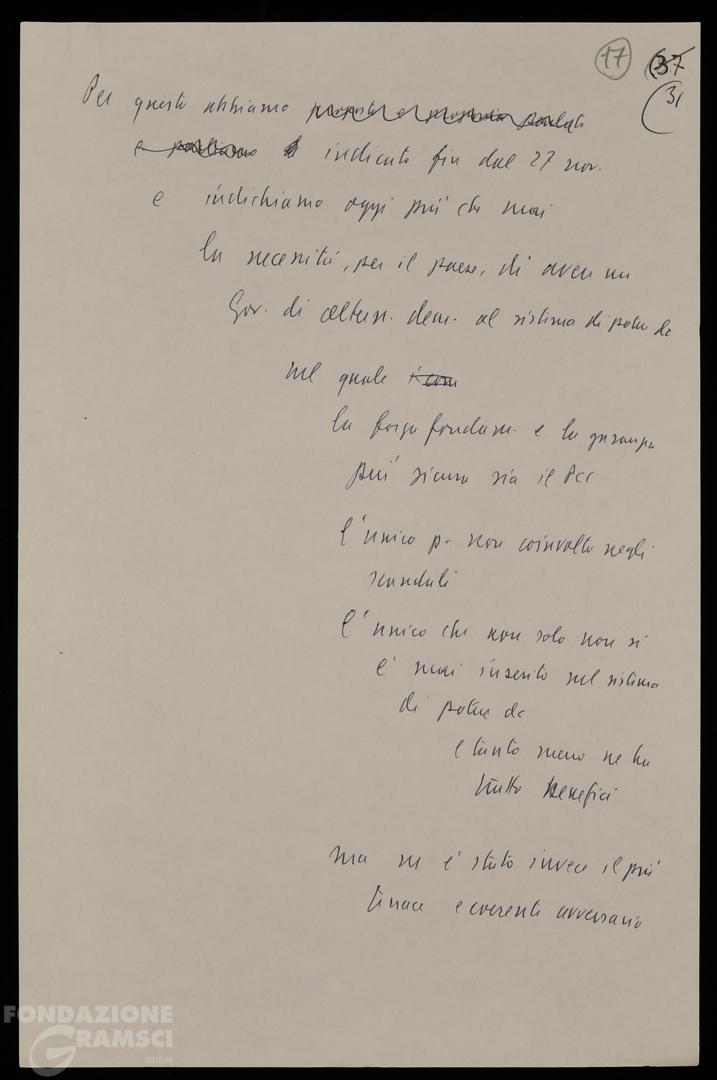 17 37
31
Per questo abbiamo
indicato fin dal 27 nov.
e indichiamo oggi più che mai
la necessità, per il paese, di avere un
Gov. di altern. dem. al sistema di potere dc
nel quale
la forza fondam. e la garanzia
più sicura sia il Pci
l'unico p. non coinvolto negli
scandali
l'unico che non solo non si
è mai inserito nel sistema
di potere dc
e tanto meno ne ha
tratto benefici
ma ne è stato invece il più
tenace e coerente avversario
FONDAZIONE
GRAMSCI
onlus